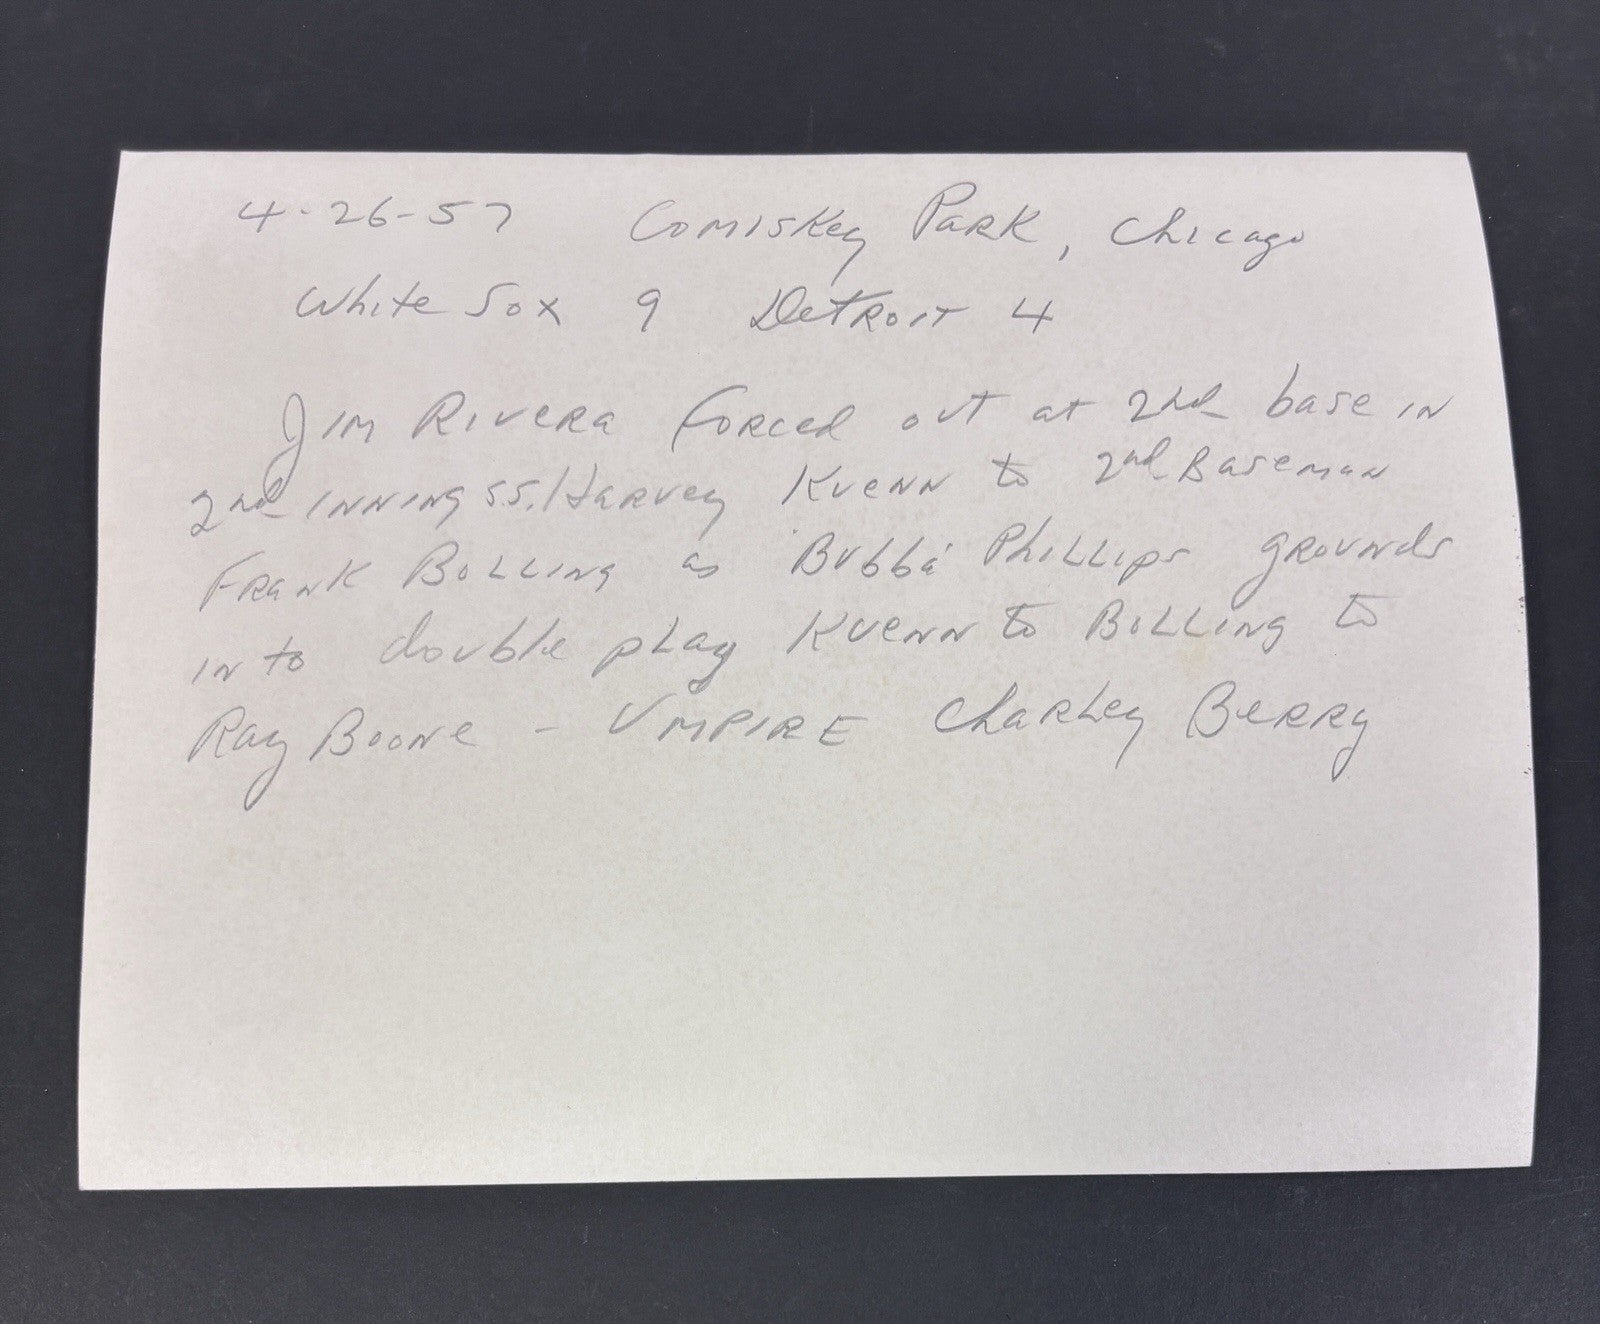 4-26-57 Comiskey Park, Chicago
White Sox 9 Detroit 4
Jim Rivera forced out at 2nd base in
2nd inning S.S. Harvey Kuenn to 2nd Baseman
Frank Bolling as "Bubba" Phillips grounds
in to double play Kuenn to Bolling to
Ray Boone - Umpire Charley Berry